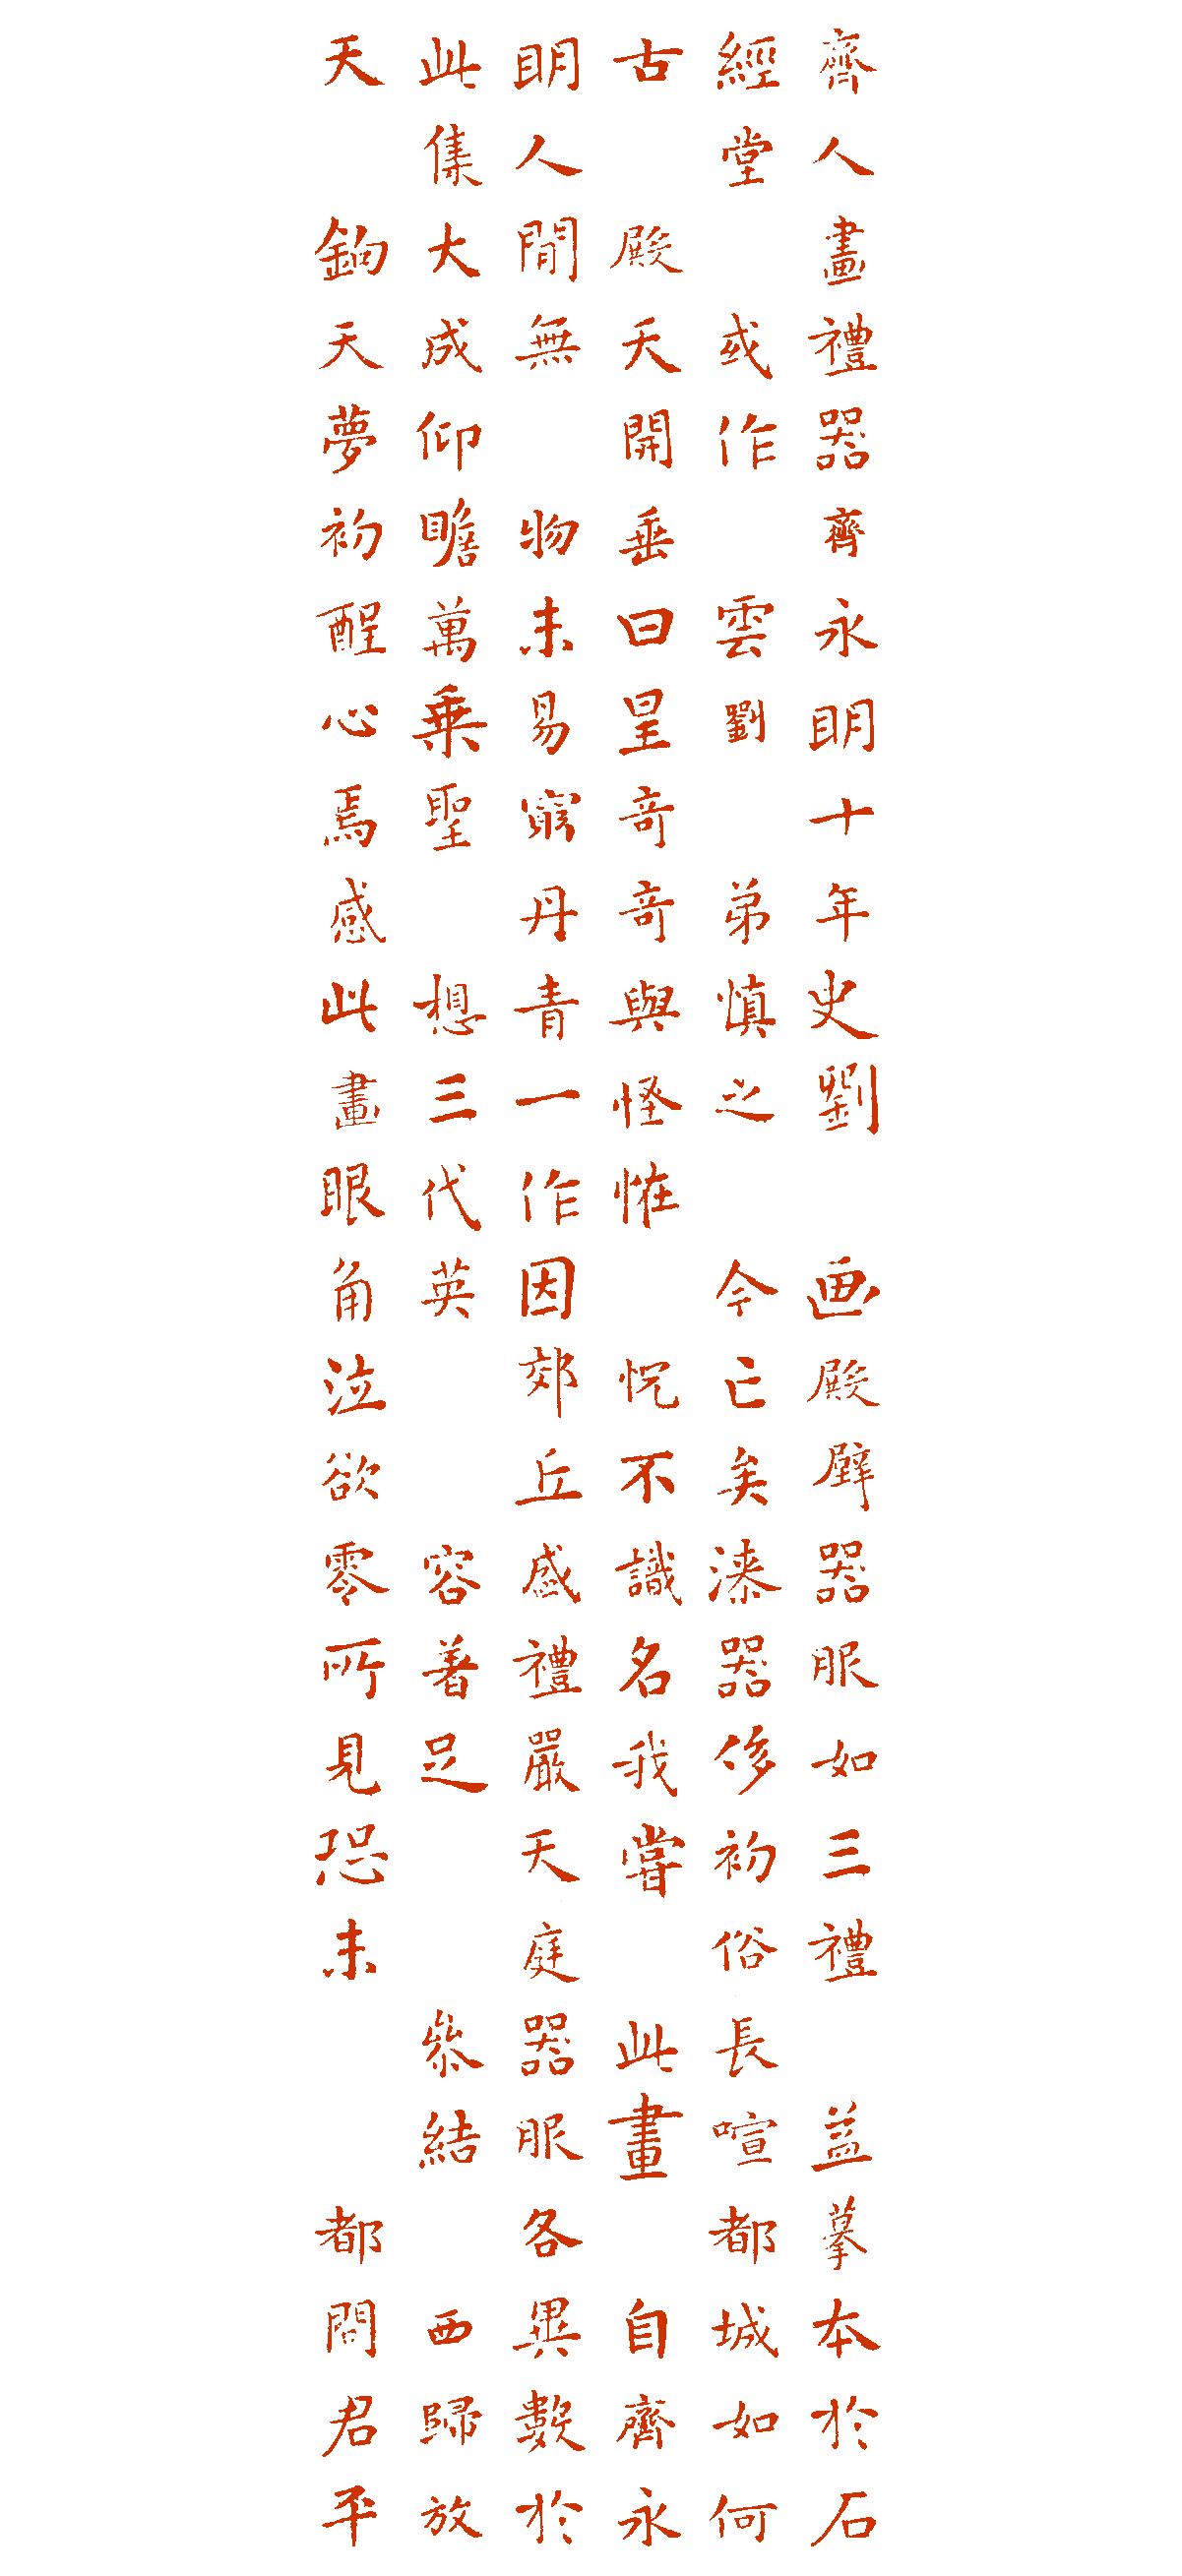 齊人畫禮器齊永明十年史劉 画殿壁器服如三禮 益摹本於石
經堂 或作 雲劉 弟慎之 今已矣漆器侈初俗長喧都城如何
古 殿天開垂曰呈奇奇與怪恠 怳不識名我嘗 此畫 自齊永
明人間無 物未易窮丹青一作因郊丘盛禮嚴天庭器服各異數於
此集大成仰瞻萬乗聖 想三代英 容著足 叅結 西歸放
天 鈞天夢初醒心焉感此畫眼角泣欲零所見恐未 都問君平